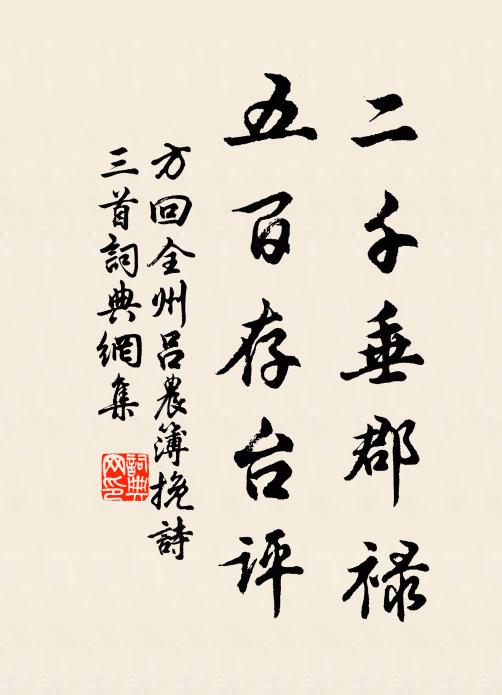 二千垂郡禄
五百存台评
方回全州吕農簿挽詩
三首詞典網集
詞典网印